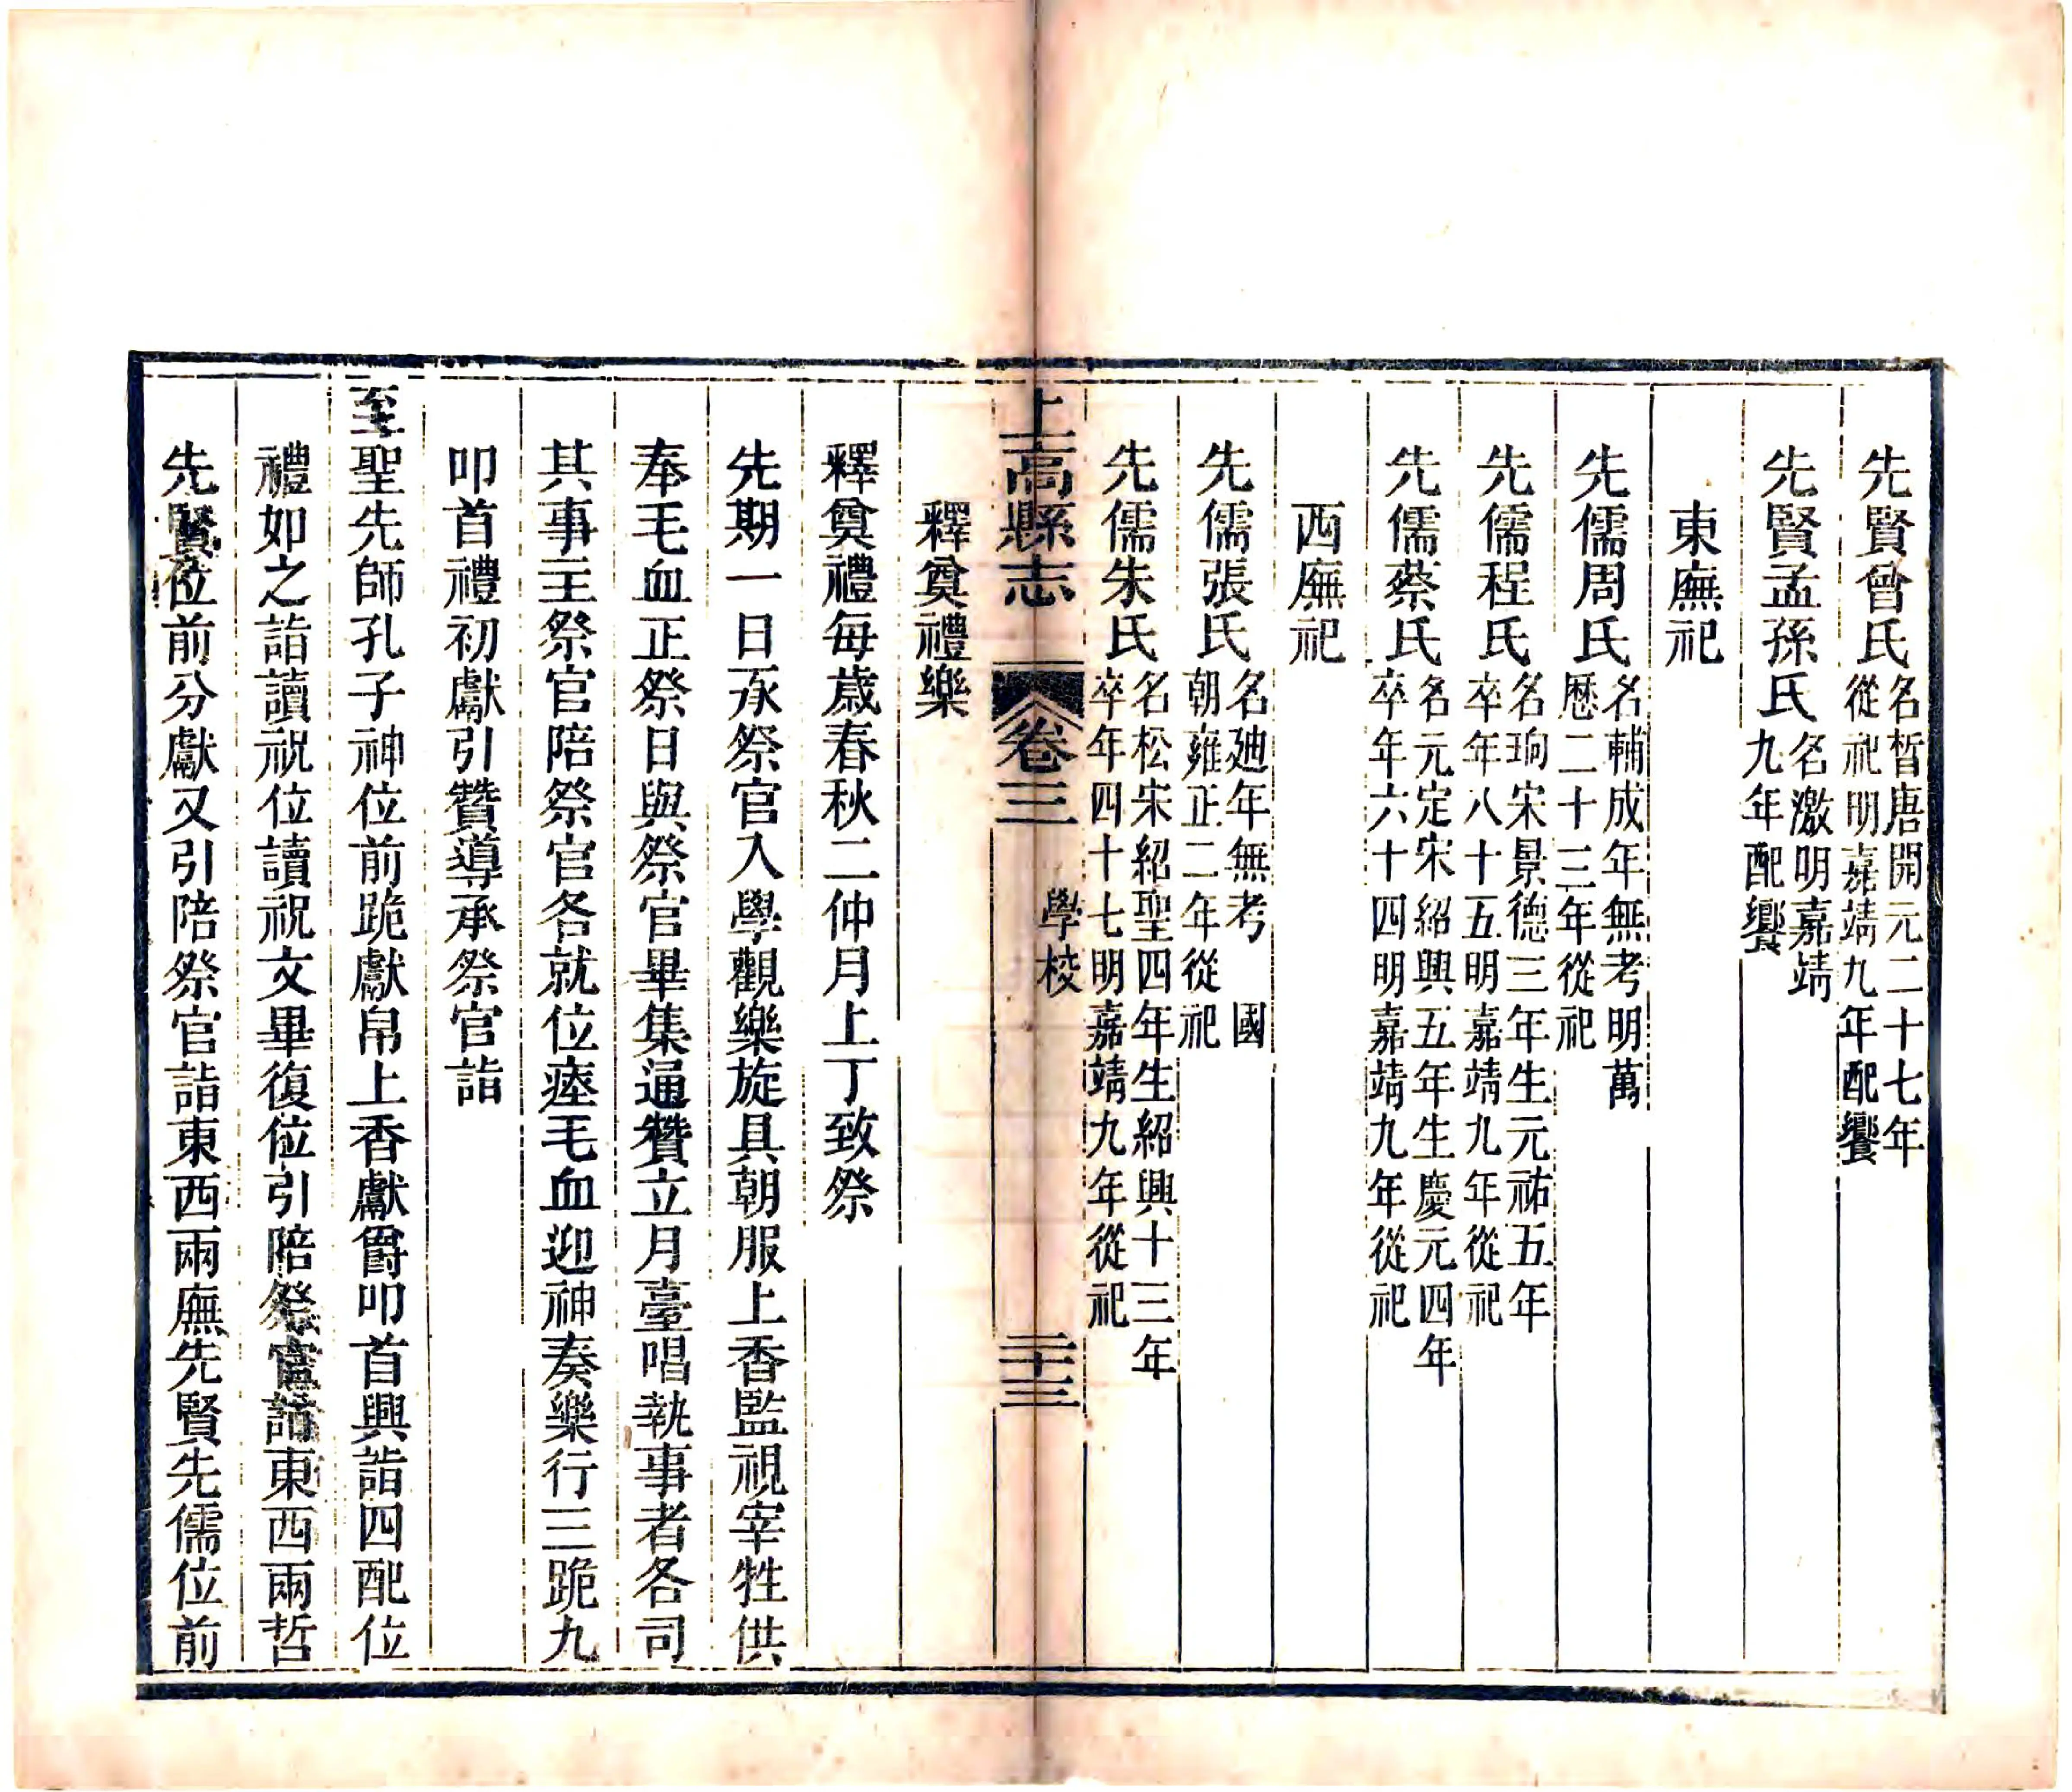 先賢曾氏名晳唐開元二十七年從祀明嘉靖九年配饗
先賢孟孫氏名激明嘉靖九年配饗
東廡祀
先儒周氏名輔成年無考明萬歷二十三年從祀
先儒程氏名珦宋景德三年生元祐五年卒年八十五明嘉靖九年從祀
先儒蔡氏名元定宋紹興五年生慶元四年卒年六十四明嘉靖九年從祀
西廡祀
先儒張氏名廸年無考 國朝雍正二年從祀
先儒朱氏名松宋紹聖四年生紹興十三年卒年四十七明嘉靖九年從祀
上高縣志 卷三 學校 二十三
釋奠禮樂
釋奠禮每歲春秋二仲月上丁致祭
先期一日承祭官入學觀樂旋具朝服上香監視宰牲供
奉毛血正祭日與祭官畢集通贊立月臺唱執事者各司
其事主祭官陪祭官各就位瘞毛血迎神奏樂行三跪九
叩首禮初獻引贊導承祭官詣
至聖先師孔子神位前跪獻帛上香獻爵叩首興詣四配位
禮如之詣讀祝位讀祝文畢復位引陪祭官詣東西兩哲
先賢位前分獻又引陪祭官詣東西兩廡先賢先儒位前